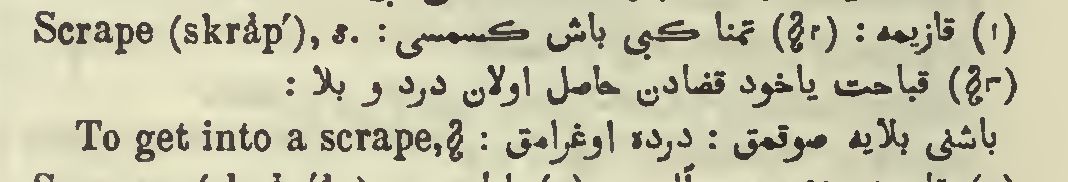 Scrape (skråp′), s. (١) قازیمه : (२٢) تمنا كبی باش كسمسی :
(२٣) قباحت یاخود قضادن حاصل اولان درد و بلا :
To get into a scrape,२ باشنی بلایه صوتمق : درده اوغرامق :